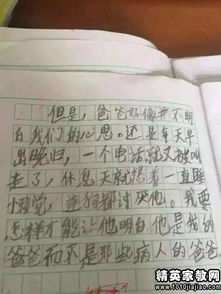 但是，爸爸好像并不明
白我们的心思。还是每天早
出晚归，一个电话就又被叫
走了，休息天就想着一直睡
懒觉，连狗都讨厌他。我要
怎样才能让他明白他是我的
爸爸而不是那些病人的爸爸。
精英家教网
www.1010jiajiao.com